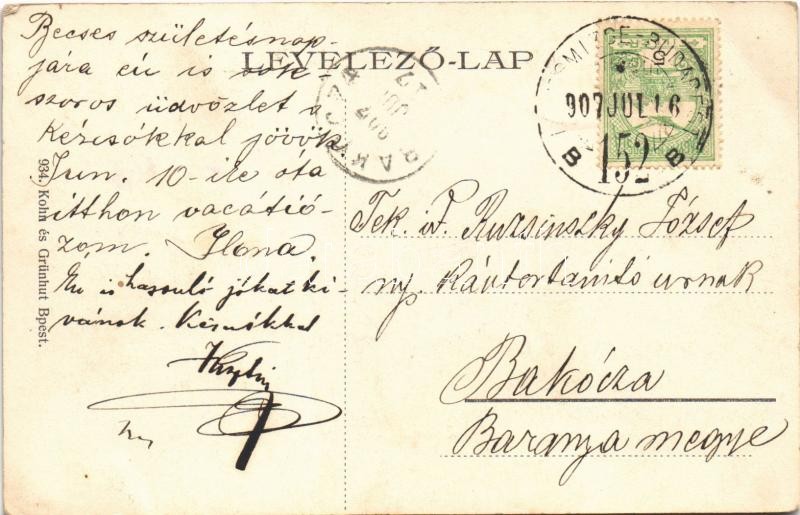 LEVELEZŐ-LAP
Becses születésnap-
jára én is sok-
szoros üdvözlet s
kézcsókkal jövök
Jun. 10-ike óta
itthon vacátió-
zom. Ilona.
Én is hasonló jókat kí-
vánok. Kézcsókkal
934. Kohn és Grünhut Bpest.
BUDAPEST
907 JUL 16
B 152 B
907 JUL 17
Tek. Ruzsinszky József
ny. kántortanító urnak
Bakócza
Baranya megye